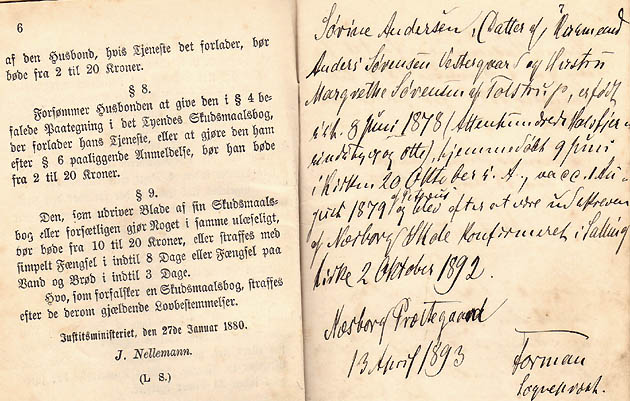 6
af den Husbond, hvis Tjeneste det forlader, bør
bøde fra 2 til 20 Kroner.
§ 8.
Forsømmer Husbonden at give den i § 4 be-
falede Paategning i det Tyendes Skudsmaalsbog,
der forlader hans Tjeneste, eller at gjøre den ham
efter § 6 paaliggende Anmeldelse, bør han bøde
fra 2 til 20 Kroner.
§ 9.
Den, som udriver Blade af sin Skudsmaals-
bog eller forsætligen gjør Noget i samme ulæseligt,
bør bøde fra 10 til 20 Kroner, eller straffes med
simpelt Fængsel i indtil 8 Dage eller Fængsel paa
Vand og Brød i indtil 3 Dage.
Hvo, som forfalsker en Skudsmaalsbog, straffes
efter de derom gjældende Lovbestemmelser.
Justitsministeriet, den 27de Januar 1880.
J. Nellemann.
(L 8.)
Sørine Andersen, Datter af
Anders Sørensen Vestergaard og Kirstine
Margrethe Sørensen af Tolstrup, er født
d. 9 Juni 1878 (Attenhundrede Halvfjer-
sindstyve og otte), hjemmedøbt 9 Juni
i Kirken 20 Oktober s. A., vacc.
1879 og blev efter at være undervist
af Næsborg Skole Konfirmeret i Salling
Kirke 2 Oktober 1892.
Næsborg Præstegaard
13 April 1893
Forman
Sognepræst.